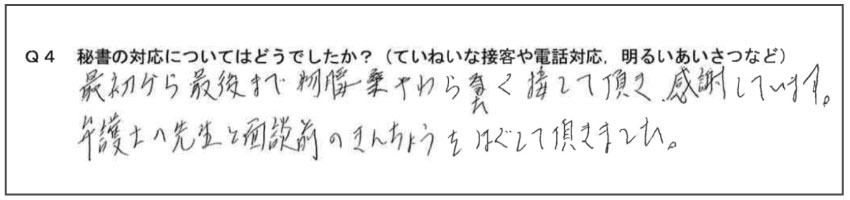 Q4 秘書の対応についてはどうでしたか?(ていねいな接客や電話対応,明るいあいさつなど)
最初から最後まで物腰やわらかく接して頂き、感謝しています。
弁護士の先生と面談前のきんちょうをほぐして頂きました。